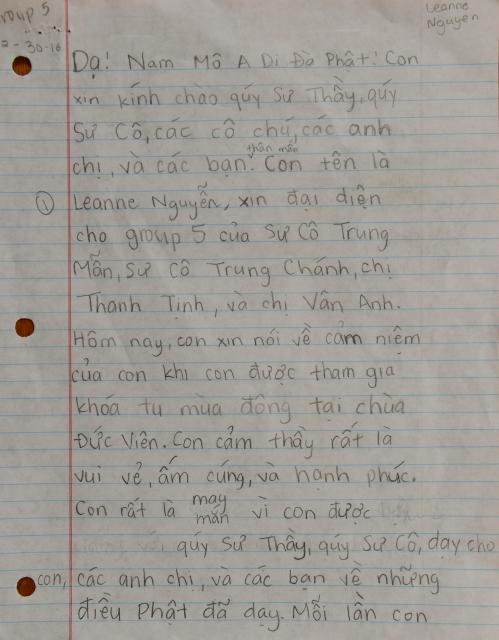 Group 5
Leanne
Nguyen
2-30-16
Dạ! Nam Mô A Di Đà Phật! Con
xin kính chào qúy Sư Thầy, qúy
Sư Cô, các cô chú, các anh
thân mến
chị, và các bạn. Con tên là
① Leanne Nguyễn, xin đại diện
cho group 5 của Sư Cô Trung
Mẫn, Sư Cô Trung Chánh, chị
Thanh Tịnh, và chị Vân Anh.
Hôm nay, con xin nói về cảm niệm
của con khi con được tham gia
khóa tu mùa đông tại chùa
Đức Viên. Con cảm thấy rất là
vui vẻ, ấm cúng, và hạnh phúc.
Con rất là may mắn vì con được
qúy Sư Thầy, qúy Sư Cô, dạy cho
con, các anh chị, và các bạn về những
điều Phật đã dạy. Mỗi lần con